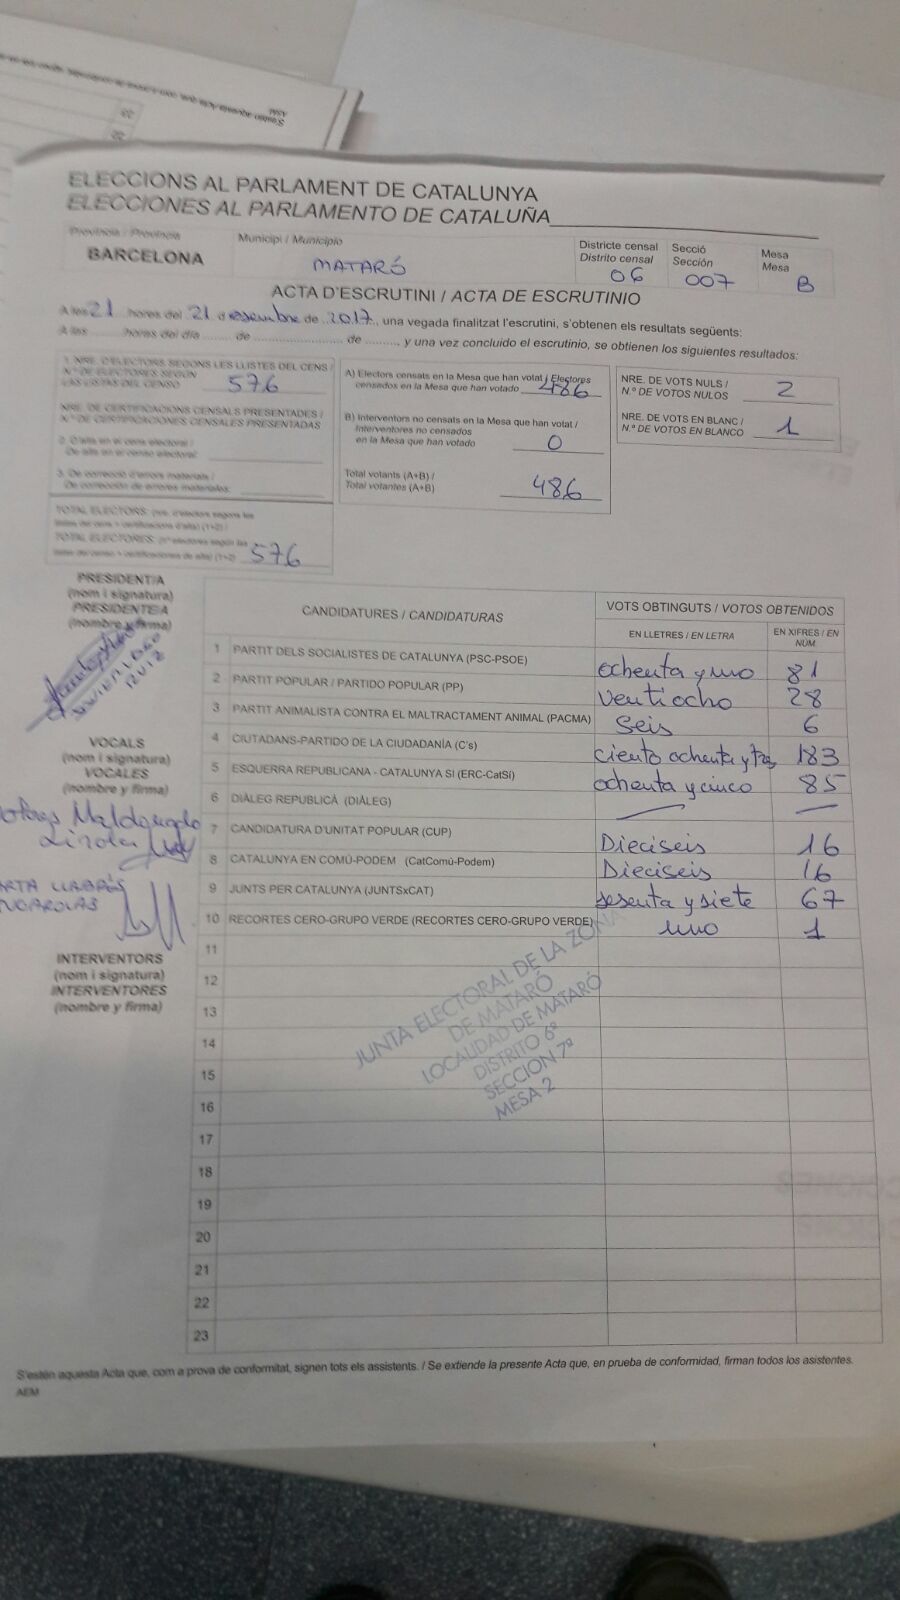 ELECCIONS AL PARLAMENT DE CATALUNYA
ELECCIONES AL PARLAMENTO DE CATALUÑA
Província / Provincia
BARCELONA
Municipi / Municipio
MATARÓ
Districte censal
Distrito censal
06
Secció
Sección
007
Mesa
Mesa
B
ACTA D'ESCRUTINI / ACTA DE ESCRUTINIO
A les 21 hores del 21 d desembre de 2017, una vegada finalitzat l'escrutini, s'obtenen els resultats següents:
A las ........ horas del día ........ de ........ de ........, y una vez concluido el escrutinio, se obtienen los siguientes resultados:
1. NRE. D'ELECTORS SEGONS LES LLISTES DEL CENS /
N.º DE ELECTORES SEGÚN
LAS LISTAS DEL CENSO 576
NRE. DE CERTIFICACIONS CENSALS PRESENTADES /
N.º DE CERTIFICACIONES CENSALES PRESENTADAS
2. D'alta en el cens electoral /
De alta en el censo electoral:
3. De correcció d'errors materials /
De corrección de errores materiales:
TOTAL ELECTORS: (nre. d'electors segons les
llistes del cens + certificacions d'alta) (1+2) /
TOTAL ELECTORES: (nº electores según las
listas del censo + certificaciones de alta) (1+2) 576
A) Electors censats en la Mesa que han votat / Electores
censados en la Mesa que han votado 486
B) Interventors no censats en la Mesa que han votat /
Interventores no censados
en la Mesa que han votado 0
Total votants (A+B) /
Total votantes (A+B) 486
NRE. DE VOTS NULS /
N.º DE VOTOS NULOS 2
NRE. DE VOTS EN BLANC /
N.º DE VOTOS EN BLANCO 1
PRESIDENT/A
(nom i signatura)
PRESIDENTE/A
(nombre y firma)
VOCALS
(nom i signatura)
VOCALES
(nombre y firma)
Maldonado
INTERVENTORS
(nom i signatura)
INTERVENTORES
(nombre y firma)
CANDIDATURES / CANDIDATURAS
VOTS OBTINGUTS / VOTOS OBTENIDOS
EN LLETRES / EN LETRA
EN XIFRES / EN NÚM.
1 PARTIT DELS SOCIALISTES DE CATALUNYA (PSC-PSOE) ochenta y uno 81
2 PARTIT POPULAR / PARTIDO POPULAR (PP) Ventiocho 28
3 PARTIT ANIMALISTA CONTRA EL MALTRACTAMENT ANIMAL (PACMA) Seis 6
4 CIUTADANS-PARTIDO DE LA CIUDADANÍA (C's) ciento ochenta y tres 183
5 ESQUERRA REPUBLICANA - CATALUNYA SÍ (ERC-CatSí) ochenta y cinco 85
6 DIÀLEG REPUBLICÀ (DIÀLEG) — —
7 CANDIDATURA D'UNITAT POPULAR (CUP) Dieciseis 16
8 CATALUNYA EN COMÚ-PODEM (CatComú-Podem) Dieciseis 16
9 JUNTS PER CATALUNYA (JUNTSxCAT) sesenta y siete 67
10 RECORTES CERO-GRUPO VERDE (RECORTES CERO-GRUPO VERDE) uno 1
11
12
13
14
15
16
17
18
19
20
21
22
23
JUNTA ELECTORAL DE LA ZONA
DE MATARÓ
LOCALIDAD DE MATARÓ
DISTRITO 6º
SECCION 7ª
MESA 2
S'estén aquesta Acta que, com a prova de conformitat, signen tots els assistents. / Se extiende la presente Acta que, en prueba de conformidad, firman todos los asistentes.
AEM